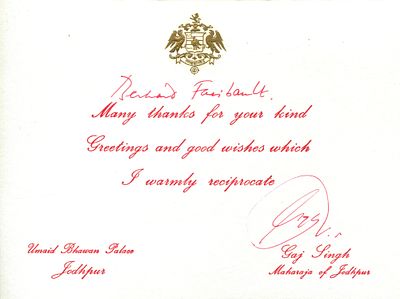 Bernard Faribault.
Many thanks for your kind
Greetings and good wishes which
I warmly reciprocate
Umaid Bhawan Palace
Jodhpur
Gaj Singh
Maharaja of Jodhpur